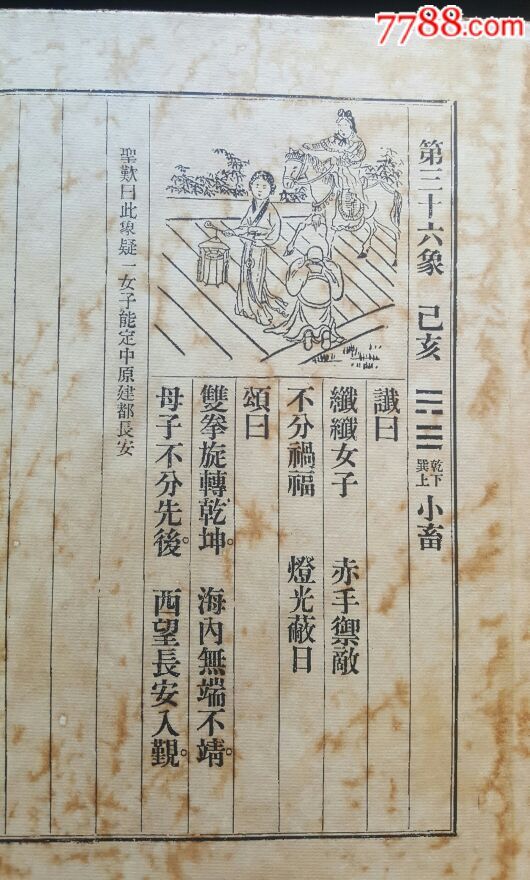 7788.com
第三十六象 己亥 乾下巽上 小畜
讖曰
纖纖女子 赤手禦敵
不分禍福 燈光蔽日
頌曰
雙拳旋轉乾坤。海內無端不靖。
母子不分先後。西望長安入覲。
聖歎曰此象疑一女子能定中原建都長安